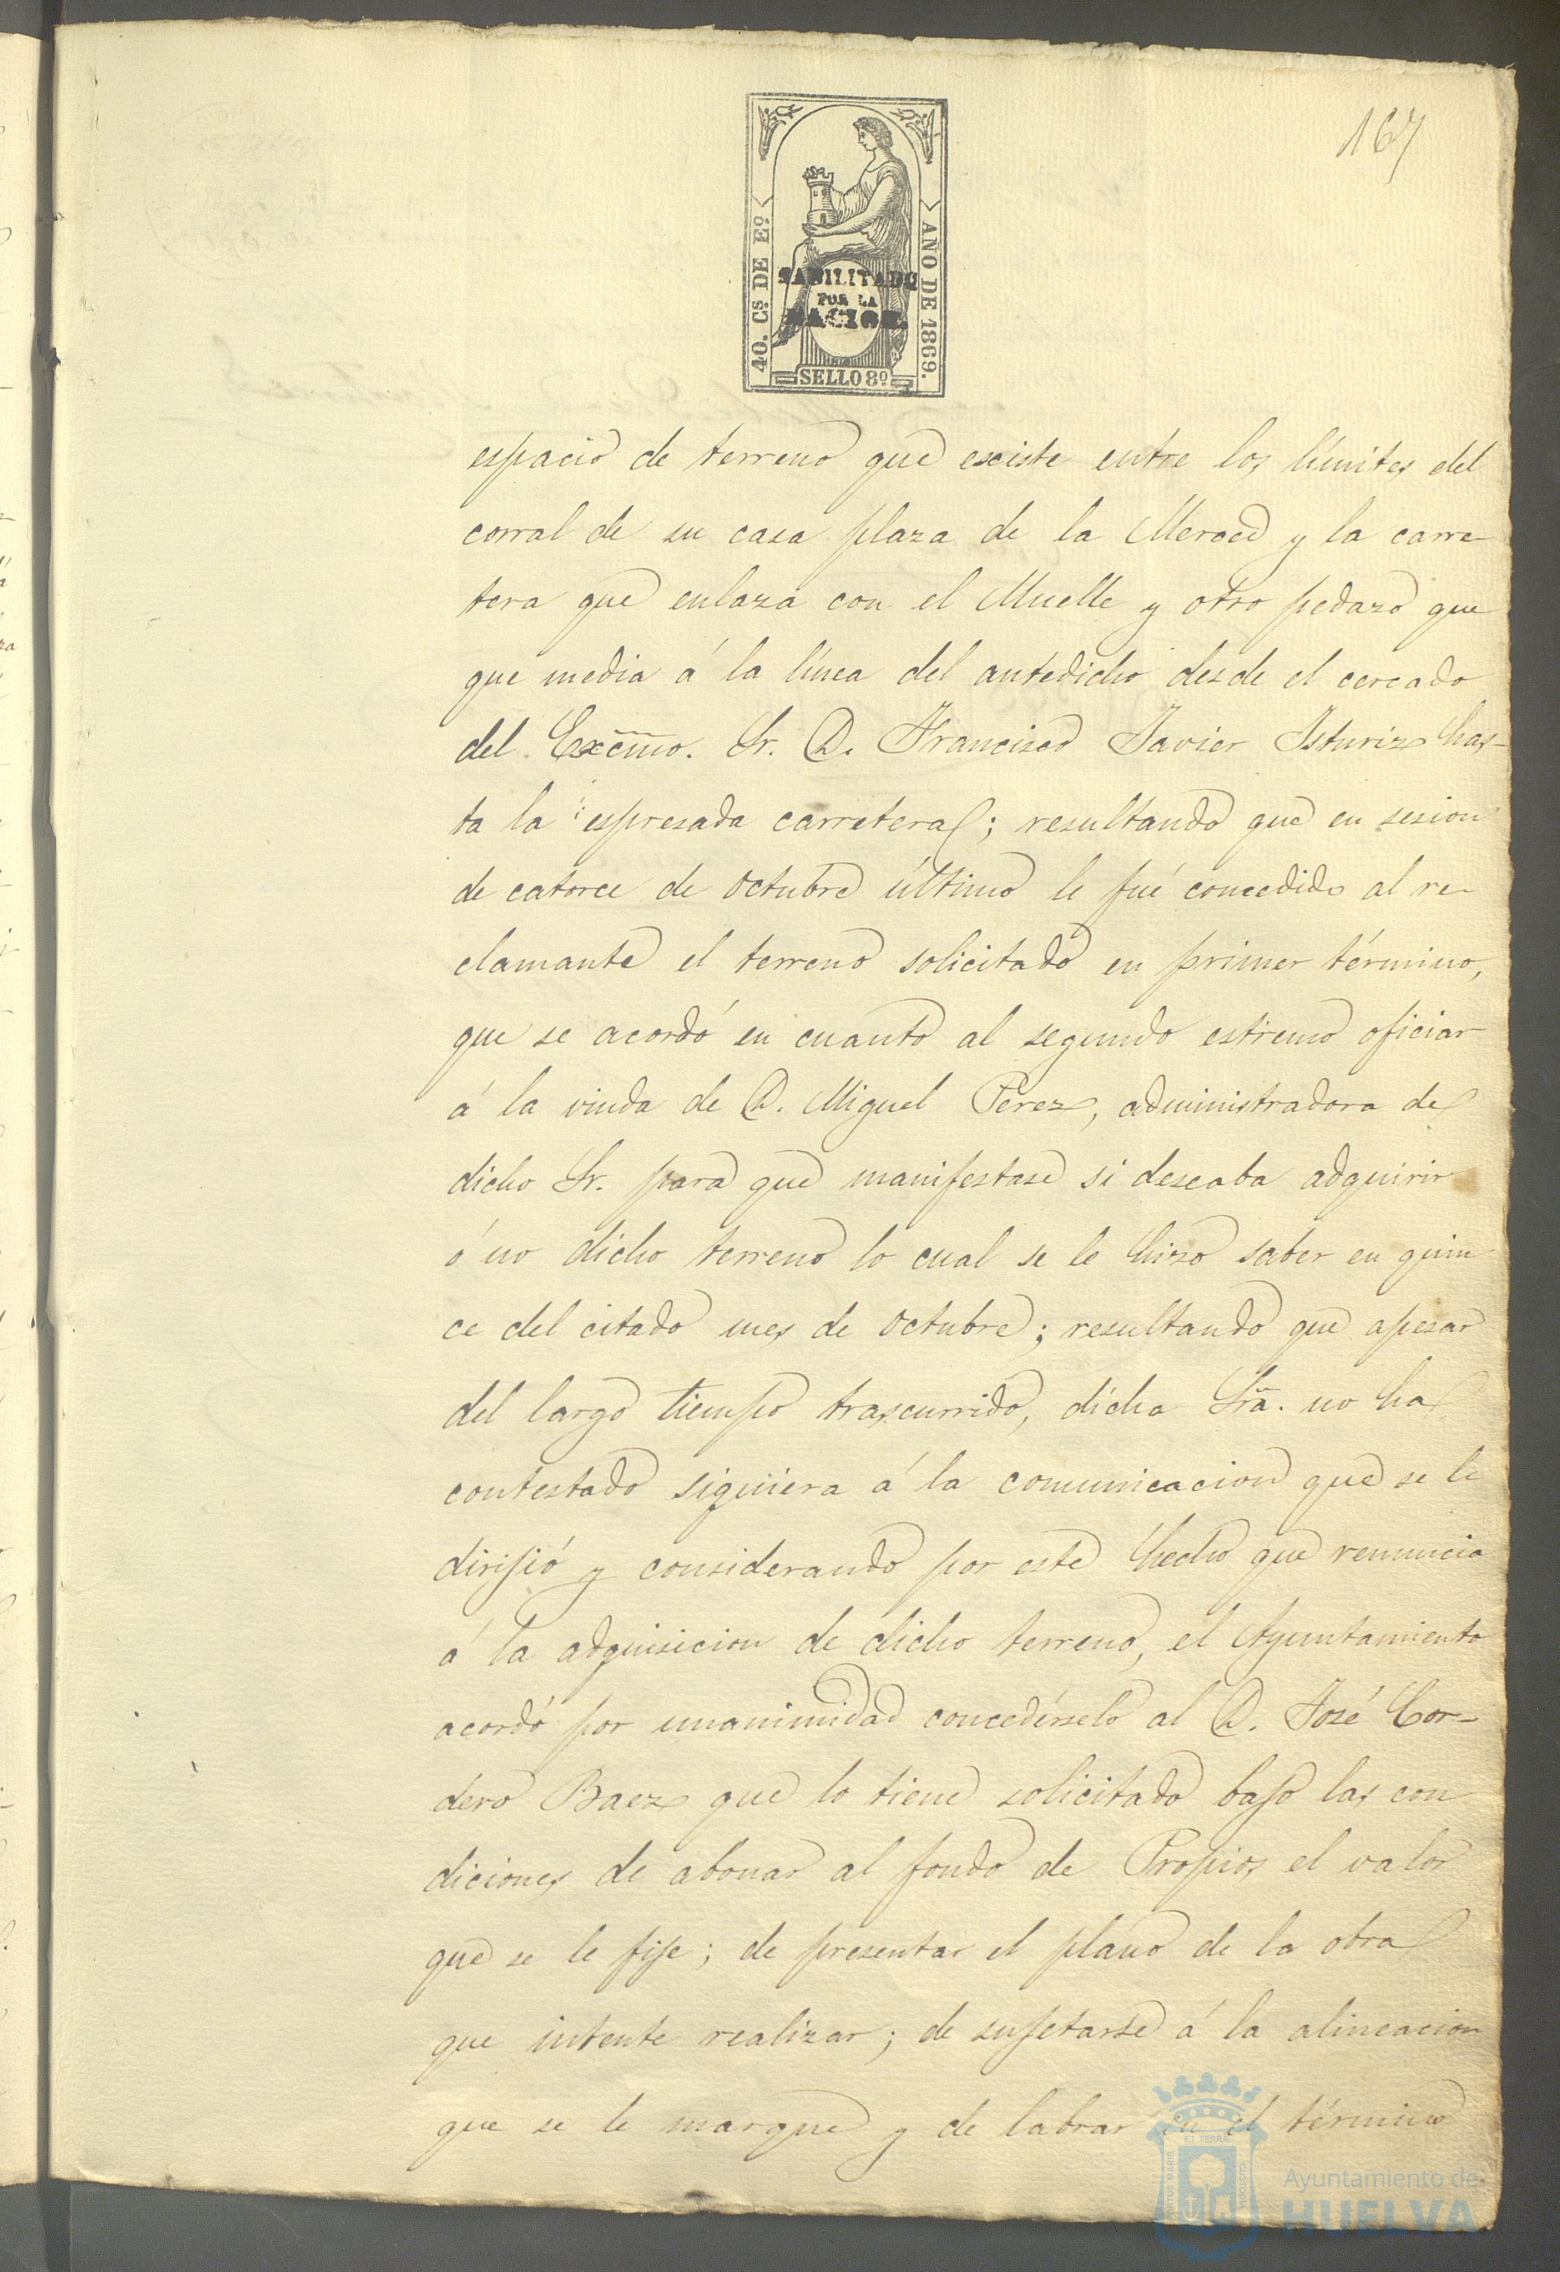 167
40. Cs. DE Eº
AÑO DE 1869.
HABILITADO
POR LA
NACION.
SELLO 8º
espacio de terreno que esciste entre los límites del
corral de su casa plaza de la Merced y la carre-
tera que enlaza con el Muelle y otro pedazo que
que media á la línea del antedicho desde el cercado
del Excmo. Sr. D. Francisco Javier Isturiz has-
ta la espresada carretera; resultando que en sesion
de catorce de Octubre último le fué concedido al re-
clamante el terreno solicitado en primer término,
que se acordó en cuanto al segundo estremo oficiar
á la viuda de D. Miguel Perez, administradora de
dicho Sr. para que manifestase si deseaba adquirir
ó no dicho terreno lo cual se le hizo saber en quin
ce del citado mes de Octubre; resultando que apesar
del largo tiempo trascurrido, dicha Sra. no ha
contestado siquiera á la comunicacion que se le
dirijió y considerando por este hecho que renuncia
á la adquisicion de dicho terreno, el Ayuntamiento
acordó por unanimidad concedérselo al D. José Cor-
dero Baez que lo tiene solicitado bajo las con
diciones de abonar al fondo de Propios el valor
que se le fije; de presentar el plano de la obra
que intente realizar; de sujetarse á la alineacion
que se le marque y de labrar en el término
Ayuntamiento de
HUELVA